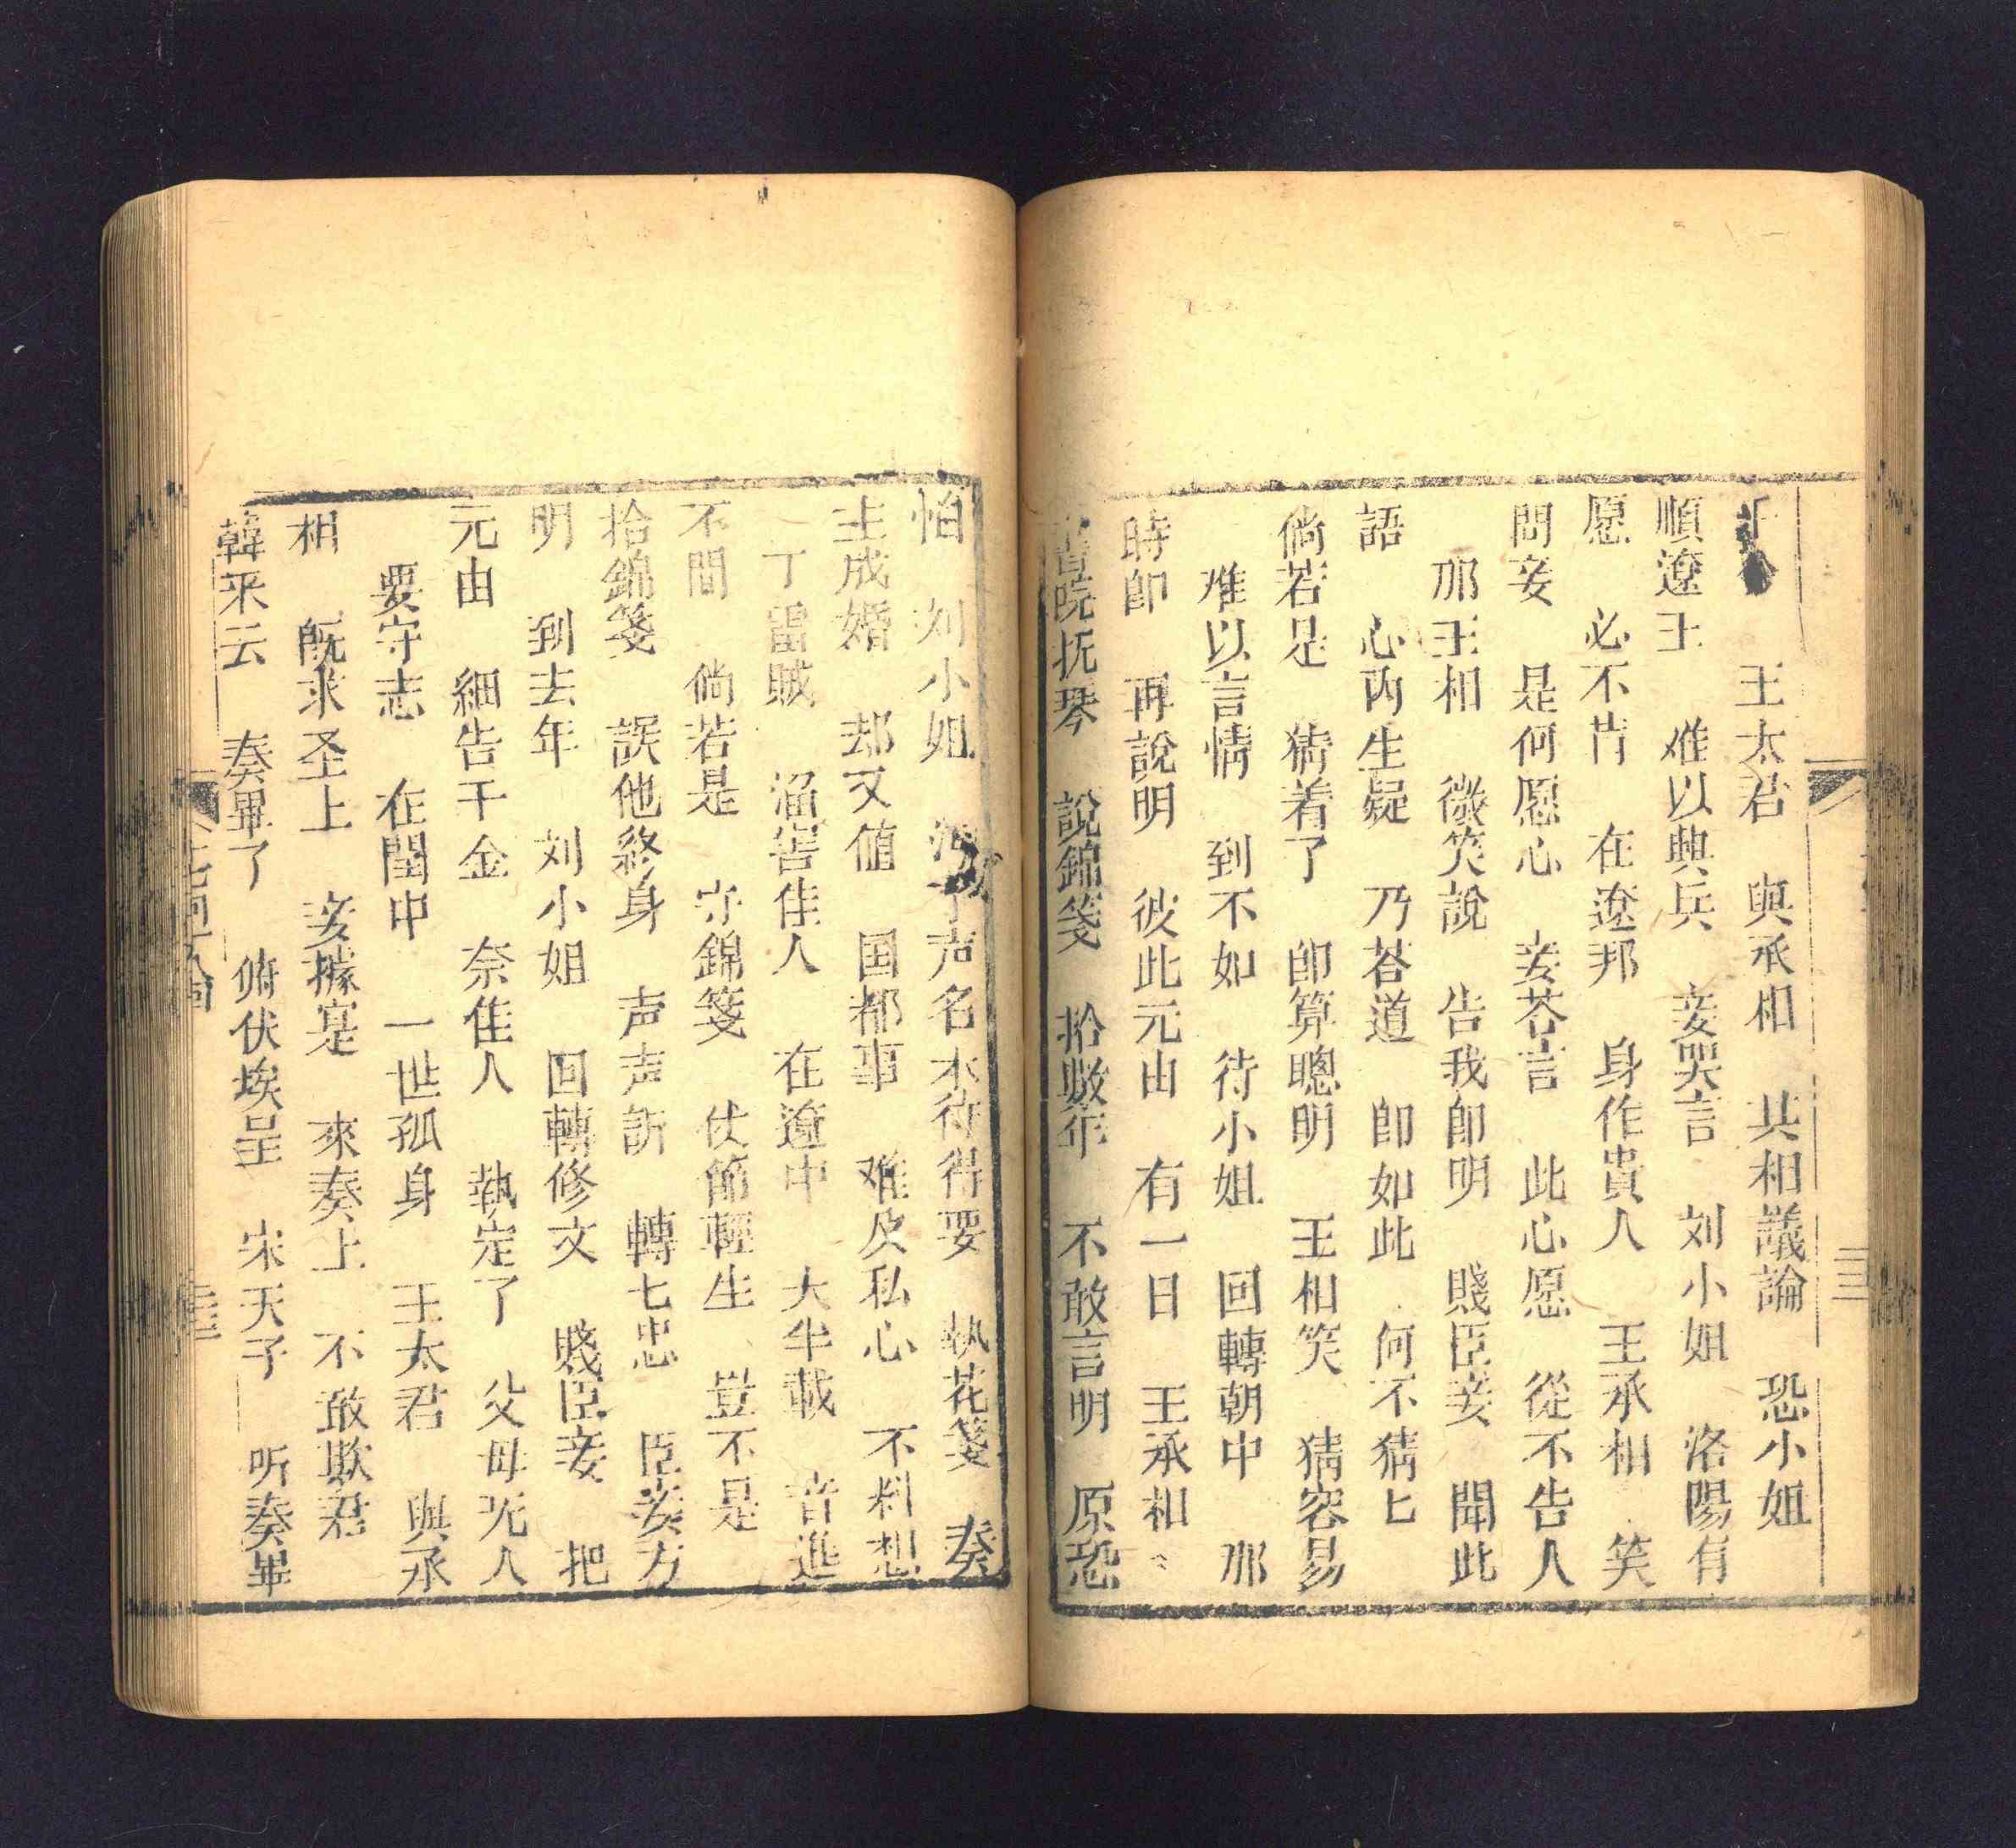 王太君 與承相 共相議論 恐小姐
順遼王 难以興兵 妾哭言 刘小姐 洛陽有
愿 必不肯 在遼邦 身作貴人 王承相 笑
問妾 是何愿心 妾荅言 此心愿 從不告人
那王相 微笑說 告我卽明 賤臣妾 聞此
語 心內生疑 乃荅道 卽如此 何不猜匕
倘若是 猜着了 卽算聰明 王相笑 猜容易
难以言情 到不如 待小姐 回轉朝中 那
時卽 再說明 彼此元由 有一日 王承相〻
院抚琴 說錦箋 拾數年 不敢言明 原恐
怕 刘小姐 声名 不待得要 執花箋 奏
主成婚 却又值 国都事 难皮私心 不料想
丁當賊 滛害佳人 在遼中 大半載 音進
不間 倘若是 守錦箋 仗節輕生 豈不是
拾錦箋 誤他終身 声声訴 轉七忠 臣妾方
明 到去年 刘小姐 回轉修文 賤臣妾 把
元由 細告千金 奈佳人 執定了 父母兄人
要守志 在閨中 一世孤身 王太君 與承
相 旣求圣上 妾據寔 來奏上 不敢欺君
韓采云 奏畢了 俯伏埃呈 宋天子 听奏畢